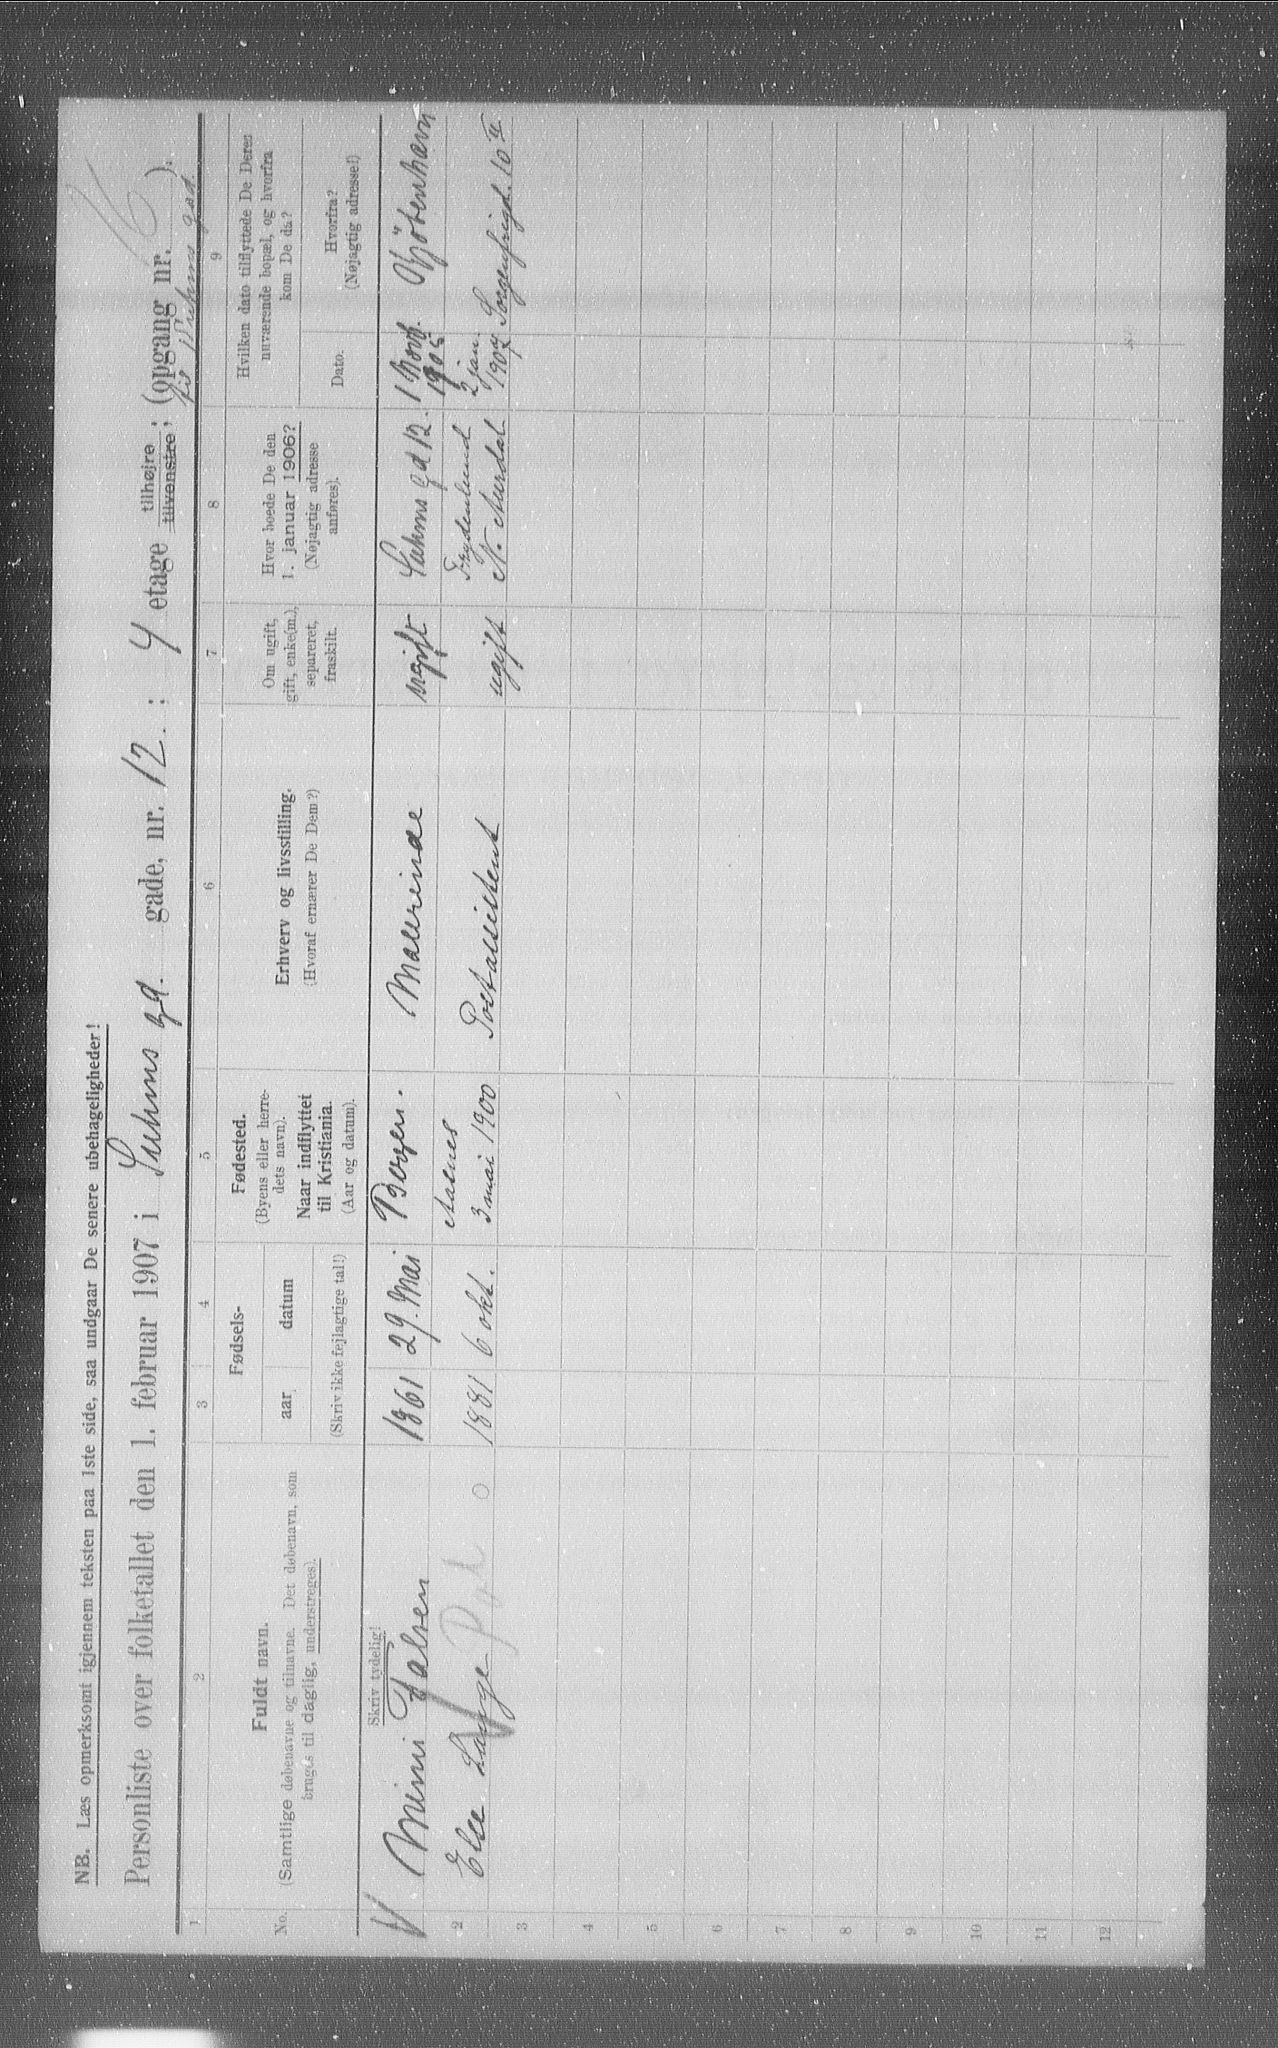 NB. Læs opmerksomt igjennem teksten paa 1ste side, saa undgaar De senere ubehageligheder!
Personliste over folketallet den 1. februar 1907 i Suhms gd. gade, nr. 12. ; 4 etage tilhøjre tilvenstre ; (opgang nr. ).
Suhms gad.
1 2 3 4 5 6 7 8 9
No.
Fuldt navn.
(Samtlige døbenavne og tilnavne. Det døbenavn, som
bruges til daglig, understreges).
Fødsels-
aar datum
(Skriv ikke fejlagtige tal!)
Fødested.
(Byens eller herre-
dets navn).
Naar indflyttet
til Kristiania.
(Aar og datum).
Erhverv og livsstilling.
(Hvoraf ernærer De Dem?)
Om ugift,
gift, enke(m.),
separeret,
fraskilt.
Hvor boede De den
1. januar 1906?
(Nøjagtig adresse
anføres).
Hvilken dato tilflyttede De Deres
nuværende bopæl, og hvorfra
kom De da?
Dato.
Hvorfra?
(Nøjagtig adresse!)
Skriv tydelig!
Mimi Falsen 1861 29. Mai Bergen. Malerinde ugift Suhms gd 12. 1 Novb. 1905 Kjöbenhavn
2 Else Lange 1881 6 okt. Aasnes 3 mai 1900 Postassistent ugift Frydenlund N. Aurdal 2 jan. 1907 Sorgenfrigd. 10 II
3
4
5
6
7
8
9
10
11
12